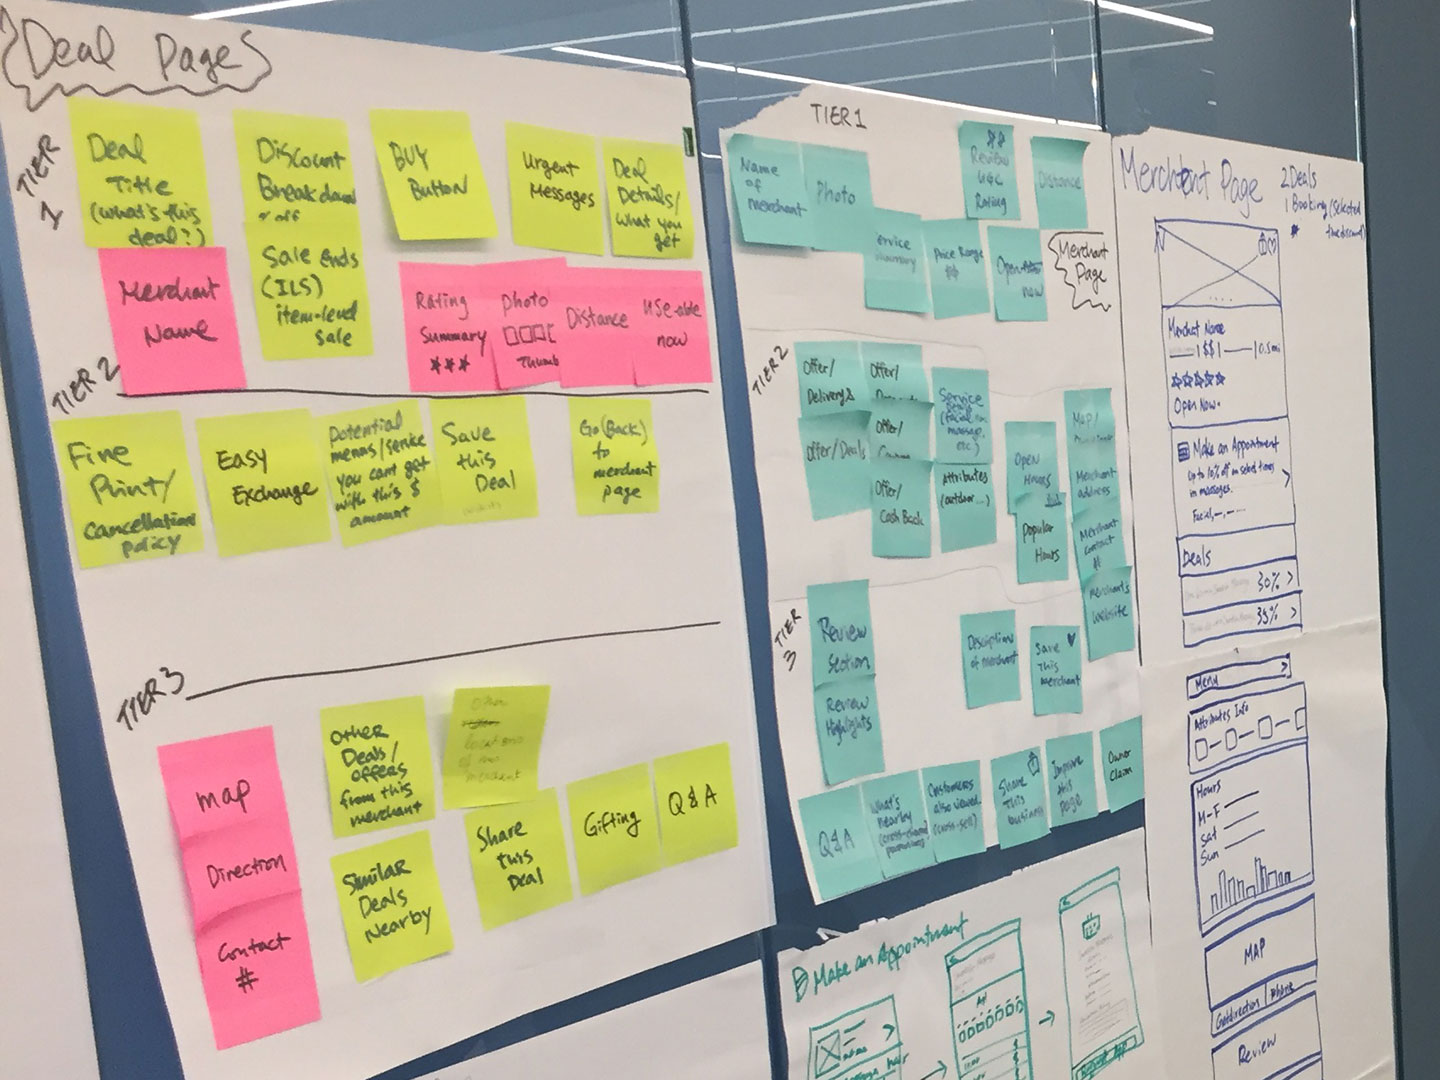 Deal Pages
TIER
1
Deal
Title
(what's this
deal?)
Discount
Breakdown
% off
BUY
Button
Urgent
Messages
Deal
Details/
what you
get
Merchant
Name
Sale ends
(ILS)
item-level
sale
Rating
Summary
★★★
photo
Thumb
Distance
use-able
now
TIER 2
Fine
Print/
Cancellation
policy
Easy
Exchange
Potential
menus/service
you cant get
with this $
amount
Save
this
Deal
Go(Back)
to
merchant
page
TIER 3
map
Direction
Contact
#
Other
Deals/
offers
from this
merchant
Other
locations
merchant
Similar
Deals
Nearby
Share
this
Deal
Gifting
Q & A
TIER 1
Name
of
merchant
Photo
Review
UGC
Rating
Distance
Service
Summary
Price Range
$$
Open
now
Merchant
Page
TIER2
Offer/
Delivery &
Offer/
Offer/Deals
Offer/
Offer/
Cash Back
Service
(facial,
massage,
etc.)
Attributes
(outdoor...)
Open
Hours
Popular
Hours
Map/
Merchant
address
Merchant
contact
#
Merchant's
Website
TIER
3
Review
section
Review
Highlights
Description
of merchant
Save
This
merchant
Q&A
What's
nearby
Customers
also viewed
(cross-sell)
Share
This
business
Improve
this
page
Owner
Claim
Make an Appointment
Merchant Page
2 Deals
1 Booking (selected
time discount)
Merchant Name
$$ 0.5mi
Open Now
Make an Appointment
up to 10% off on select times
in massages.
Facial,
Deals
30% >
35% >
Menu
Attributes Info
Hours
M-F
Sat
Sun
MAP
Get direction
phone
Review